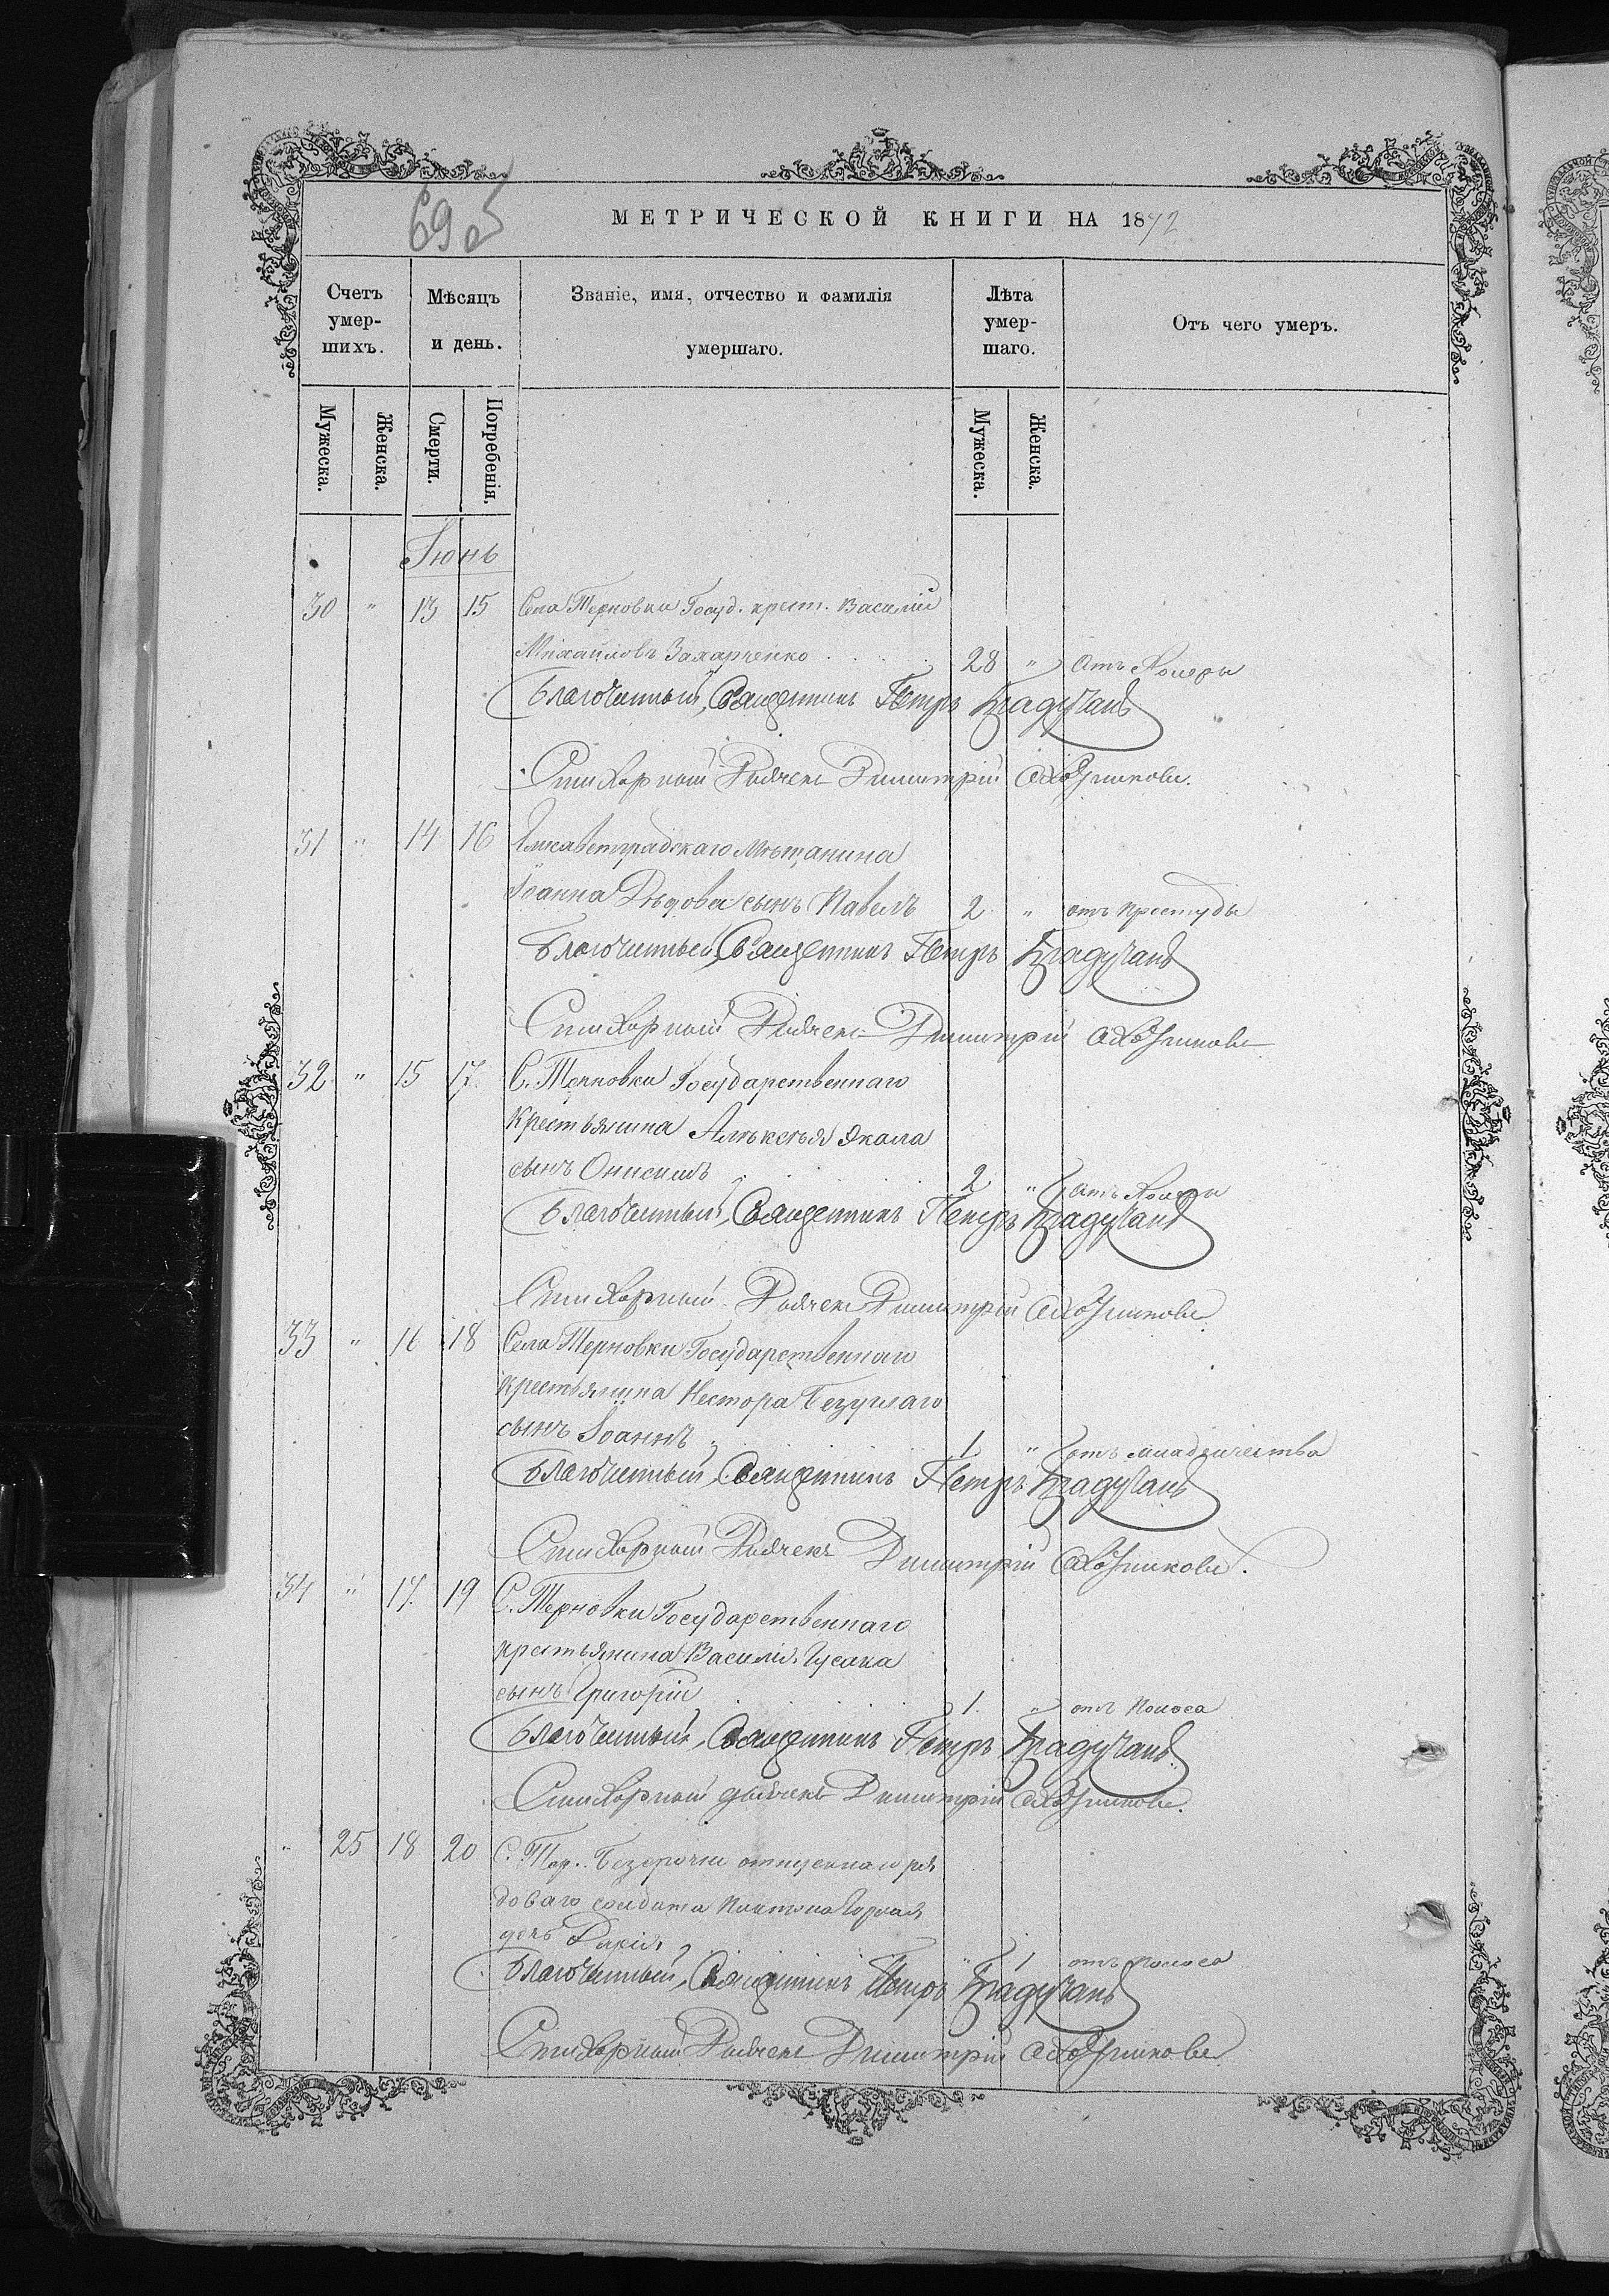 69об
МЕТРИЧЕСКОЙ КНИГИ НА 1872
Счетъ умер-шихъ.
Мѣсяцъ и день.
Званіе, имя, отчество и фамилія умершаго.
Лѣта умер-шаго.
Отъ чего умеръ.
Мужеска.
Женска.
Смерти.
Погребенія.
Мужеска.
Женска.
Іюнь
30 " 13 15 Села Терновки Госуд. крест. Василій
Михайловъ Захарченко 28 " отъ Холеры
Благочинный, Священникъ Петръ
Стихарный Дьячекъ Димитрій
31 " 14 16 Елисаветградскаго Мѣщанина
Іоанна Дѣдова сынъ Павелъ 2 " отъ простуды
Благочинный, Священникъ Петръ
Стихарный Дьячекъ Димитрій
32 " 15 17 С. Терновки Государственнаго
Крестьянина Алексѣя
сынъ Онисимъ 2 " отъ Холеры
Благочинный, Священникъ Петръ
Стихарный Дьячекъ Димитрій
33 " 16 18 Села Терновки Государственнаго
крестьянина Нестора Безуглаго
сынъ Іоаннъ 1 " отъ младенчества
Благочинный, Священникъ Петръ
Стихарный Дьячекъ Димитрій
34 " 17 19 С. Терновки Государственнаго
крестьянина Василія Гусака
сынъ Григорій 1. " отъ поноса
Благочинный, Священникъ Петръ
Стихарный дьячекъ Димитрій
" 25 18 20 С. Тер. безсрочно отпускнаго ря
доваго солдата
дочь " 1 отъ поноса
Благочинный, Священникъ Петръ
Стихарный Дьячекъ Димитрій